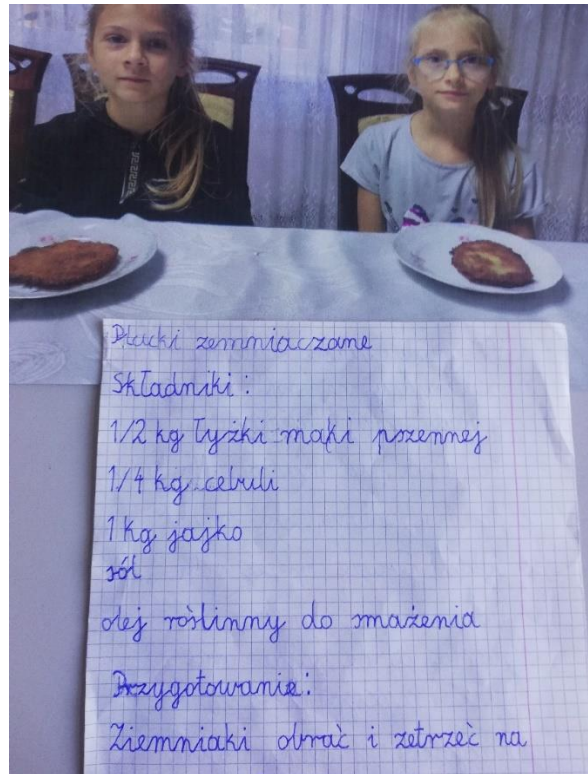 Placki zemniaczane
Składniki:
1/2 kg łyżki mąki pszennej
1/4 kg cebuli
1 kg jajko
sól
olej roślinny do smażenia
Przygotowanie:
Ziemniaki obrać i zetrzeć na